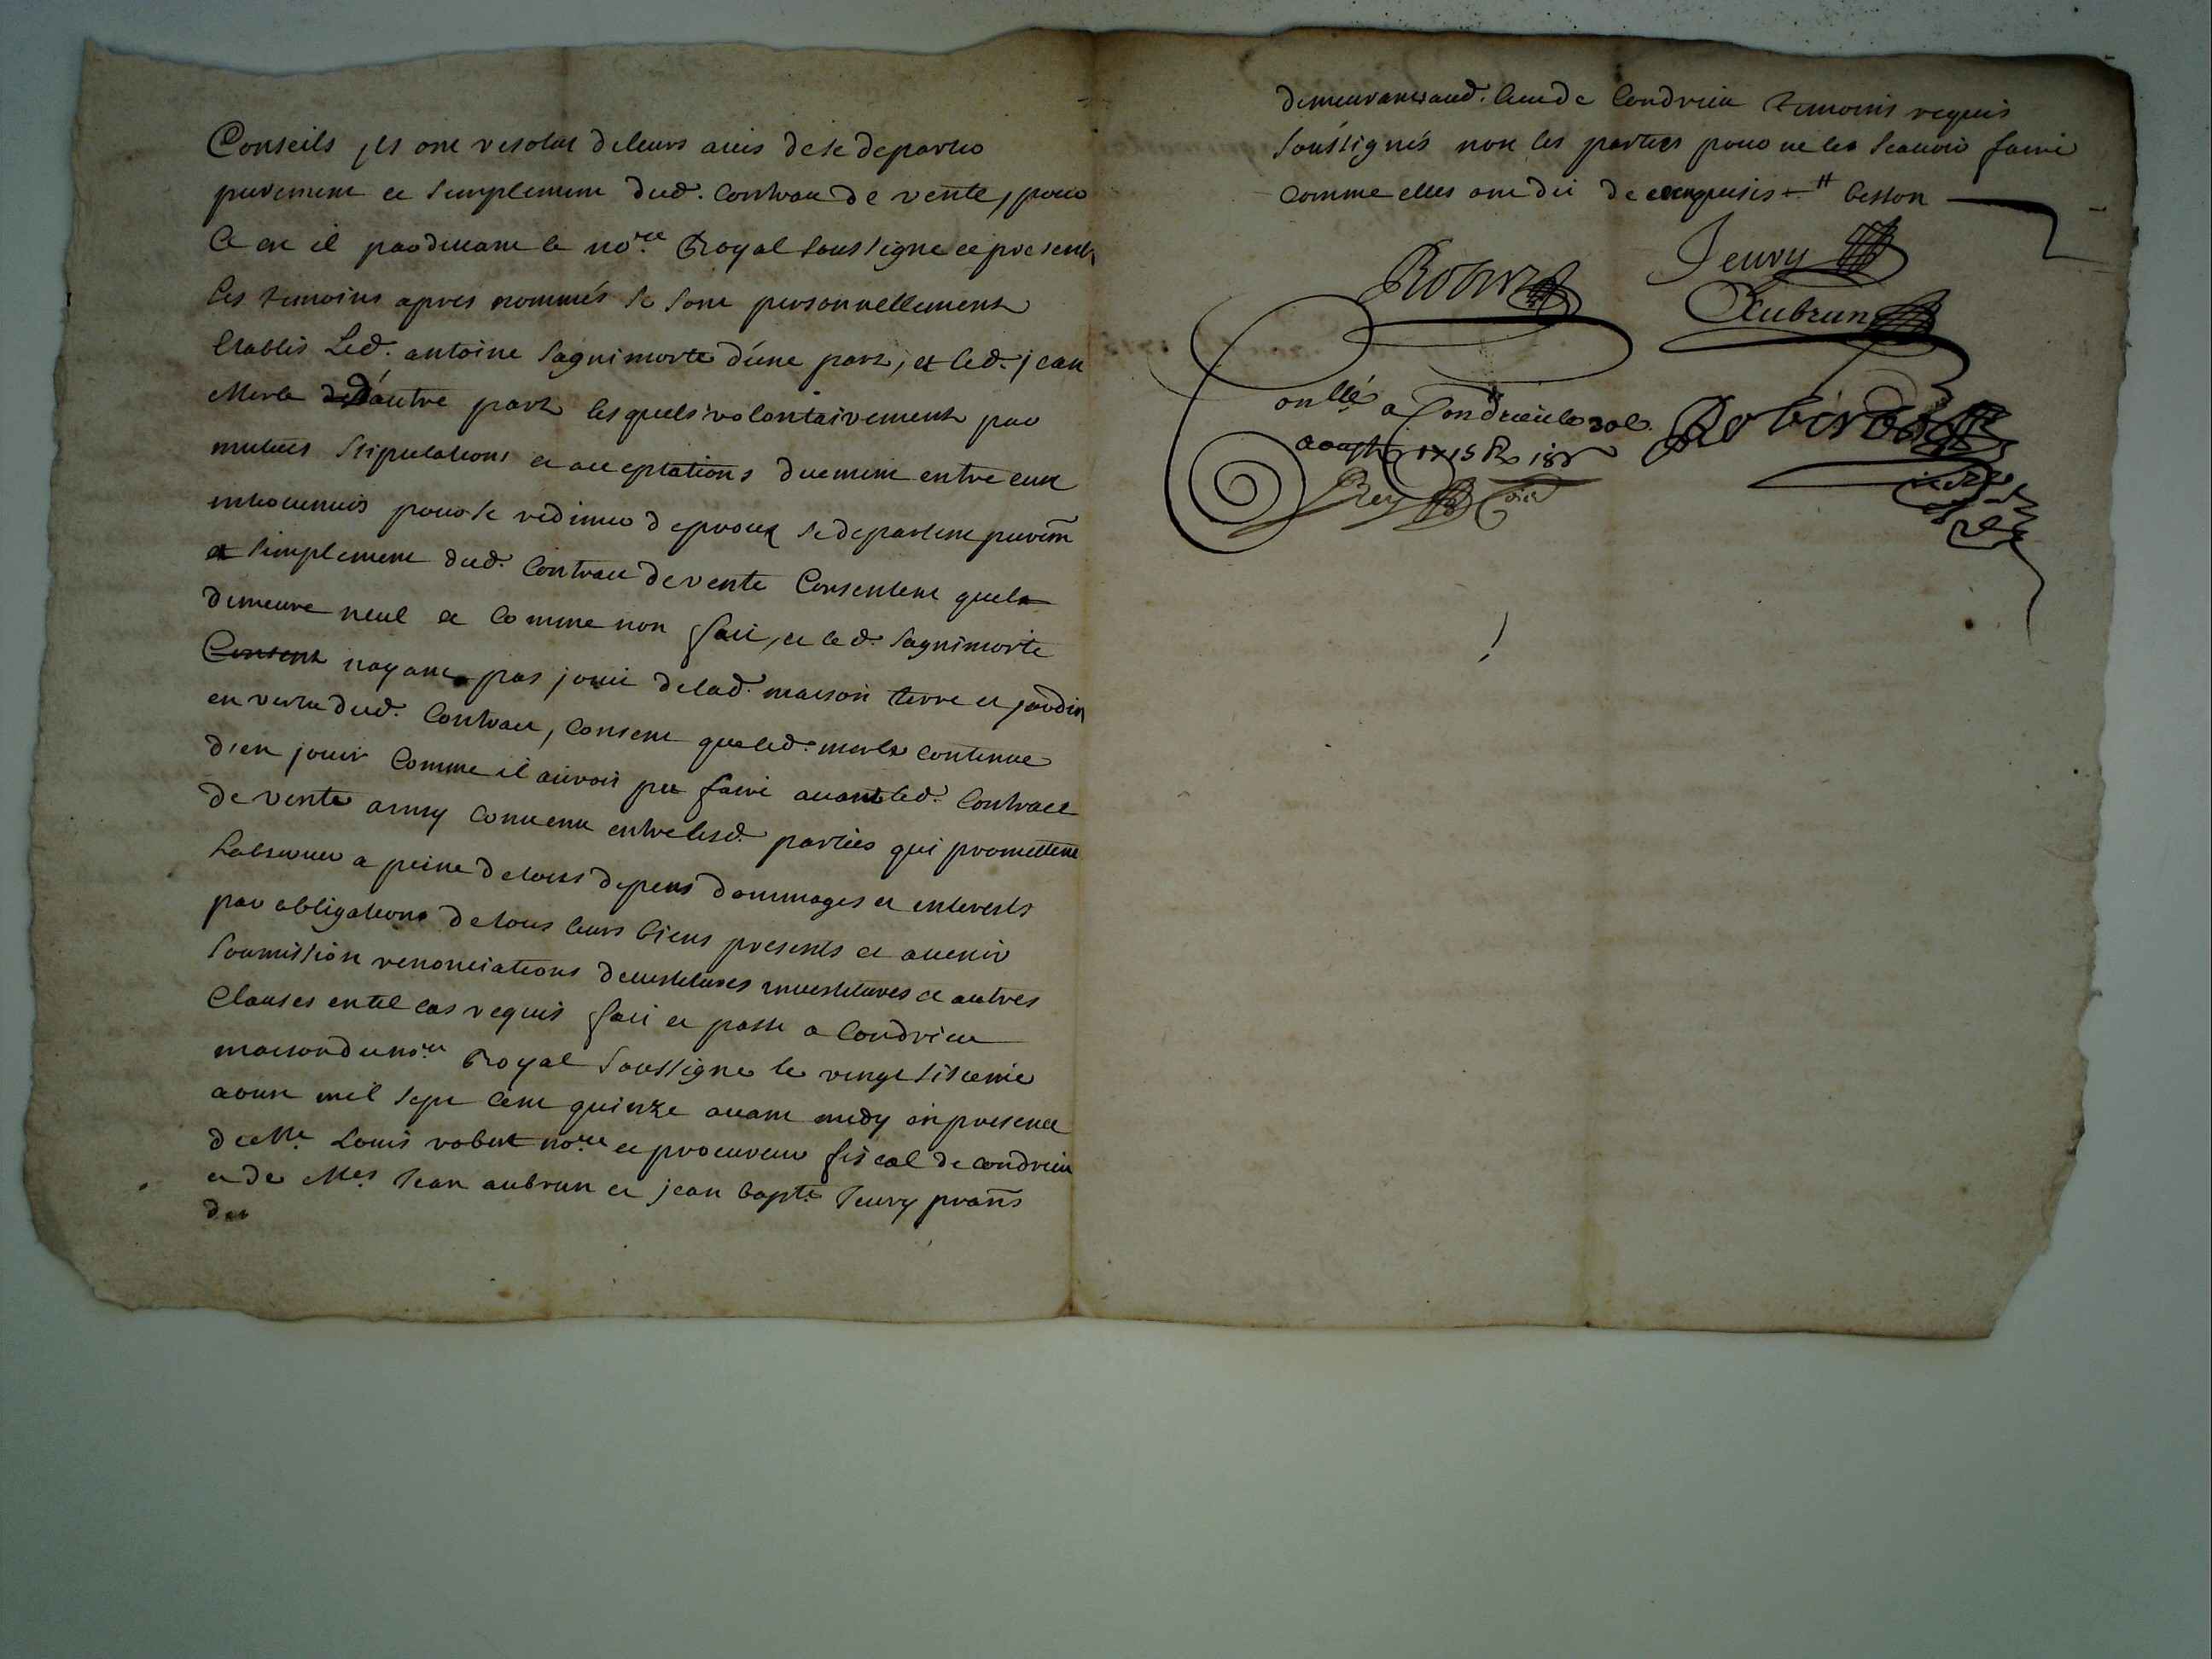 Conseils ils ont resolut de leurs avis de se departir
purement et simplement dud. Contract de vente, pour
Ce est il pardevant le no.re Royal soussigne et presents
les temoins apres nommés se sont personnellement
Etablis Led. antoine sagnimorte d'une part, et led. jean
Merle d'autre part lesquels volontairement par
mutues stipulations et acceptations duement entre eux
intervenuës pour se redimer de proces se departent purem̃
et simplement dud. Contract de vente Consentent quel
demeure nul et comme non fait, et led. sagnimorte
Consent nayant pas joui de lad. maison terre et jardin
en vertu dud. Contract, consent que led. merle continue
d'en jouir Comme il auroit pu faire avant led. Contract
de vente ainsy convenu entre lesd. parties qui promettent
L'observer a peine de tous depens dommages et interests
par obligations de tous leurs biens presents et avenir
soumission renonciations devestitures investitures et autres
Clauses en tel cas requis fait et passé a Condrieu
maison du no.re Royal soussigne le vingt sixeme
aoust mil sept cent quinze avant midy en presence
de Me. Louis robert no.re et procureur fiscal de condrieu
et de Mes. Jean aubrun et jean bapt.e Jeury prañs
demeurants aud. lieu de Condrieu temoins requis
soussignés non les parties pour ne les scavoir faire
Comme elles ont dit de ce enquises
Jeury
Robert
Aubrun
onllé a Condrieu le 30e.
aoust 1715 R
Rey